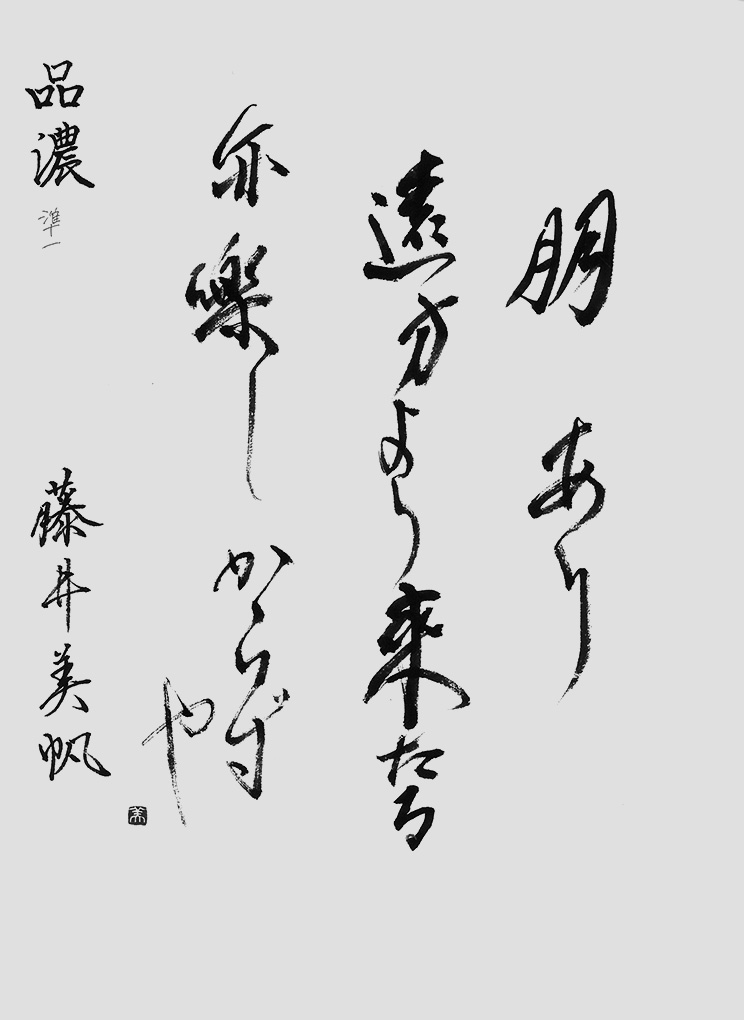 朋あり
遠方より來たる
亦樂しからずや
品濃 準一 藤井美帆
美